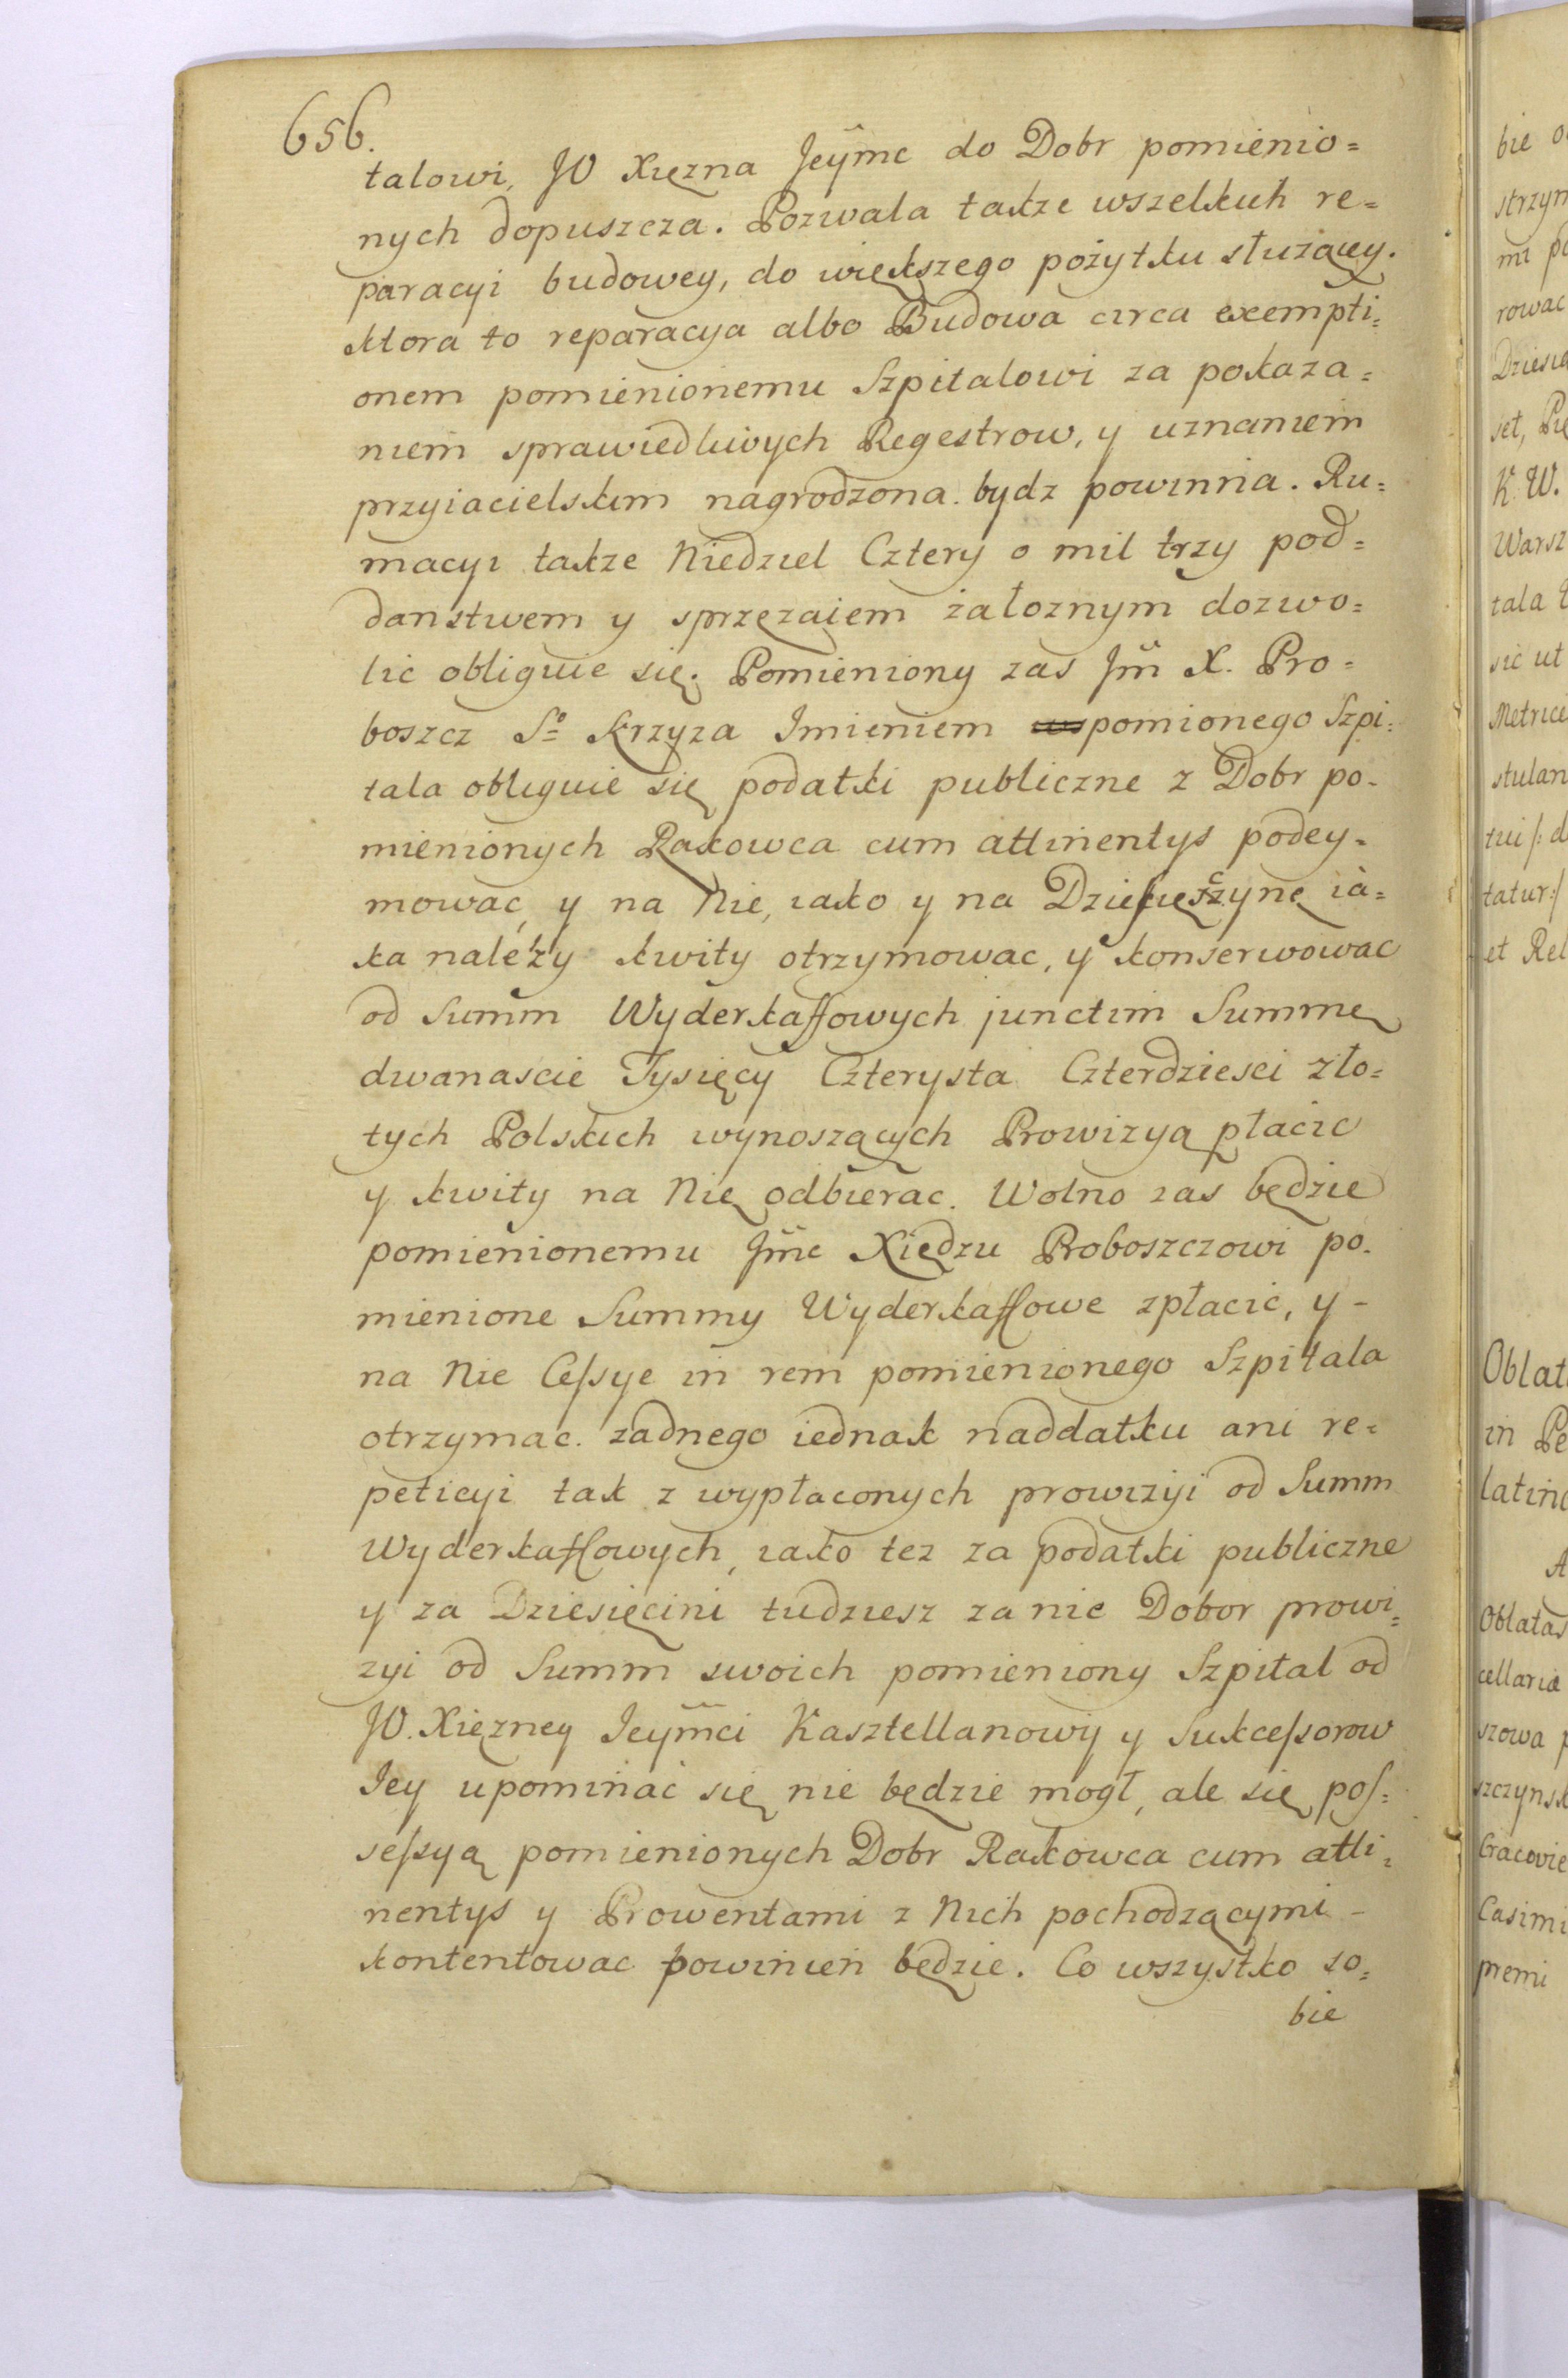 656.
talowi, JO Xięzna Jeymc do Dobr pomienio=
nych dopuszcza. Pozwala takze wszelkich re=
paracyi budowey, do większego pożytku słuząćey.
ktora to reparacya albo Budowa circa exempti=
onem pomienionemu Szpitalowi za pokaza=
niem sprawiedliwych Regestrow, y uznaniem
przyiacielskim nagrodzona bydz powinna. Ru=
macyi takze Niedziel Cztery o mil trzy pod=
danstwem y sprzęzaiem załoznym dozwo=
lic obliguie się. Pomieniony zas Jm X. Pro=
boszcz So Krzyza Imieniem pomionego Szpi=
tala obliguie się podatki publiczne z Dobr po=
mienionych Rakowca cum attinentys podey=
mować, y na Nie, iako y na ia=
ka należy kwity otrzymowac, y konserwowac
od Summ Wyderkaffowych junctim Summę
dwanascie Tysięcy Czterysta Czterdziesci zło=
tych Polskich wynoszących Prowizyą płacic
y kwity na Nię odbierac. Wolno zas będzie
pomienionemu Jmc Xiędzu Proboszczowi po=
mienione Summy Wyderkaffowe zpłacić, y -
na Nie Cessye in rem pomienionego Szpitala
otrzymac. zadnego iednak naddatku ani re=
peticyi tak z wypłaconych prowizyi od Summ
Wyderkaffowych, iako tez za podatki publiczne
y za Dziesięcini tudziesz za nie Dobor prowi=
zyi od Summ swoich pomieniony Szpital od
JO. Xięzney Jeymci Kasztellanowy y Sukcessorow
Jey upominać się nie będzie mogł, ale się pos=
sessyą pomienionych Dobr Rakowca cum atti=
nentys y Prowentami z Nich pochodzącymi -
kontentowac powinien będzie. Co wszystko so=
bie
strzym
rowac
K. W.
Warsz
tala
sic ut
Metrice
stulan
tatur:/
et Rel
Oblat
in Pe
latino
A
Oblatas
cellaria
szowa p
szczynsk
Cracovie
Casimi
premi